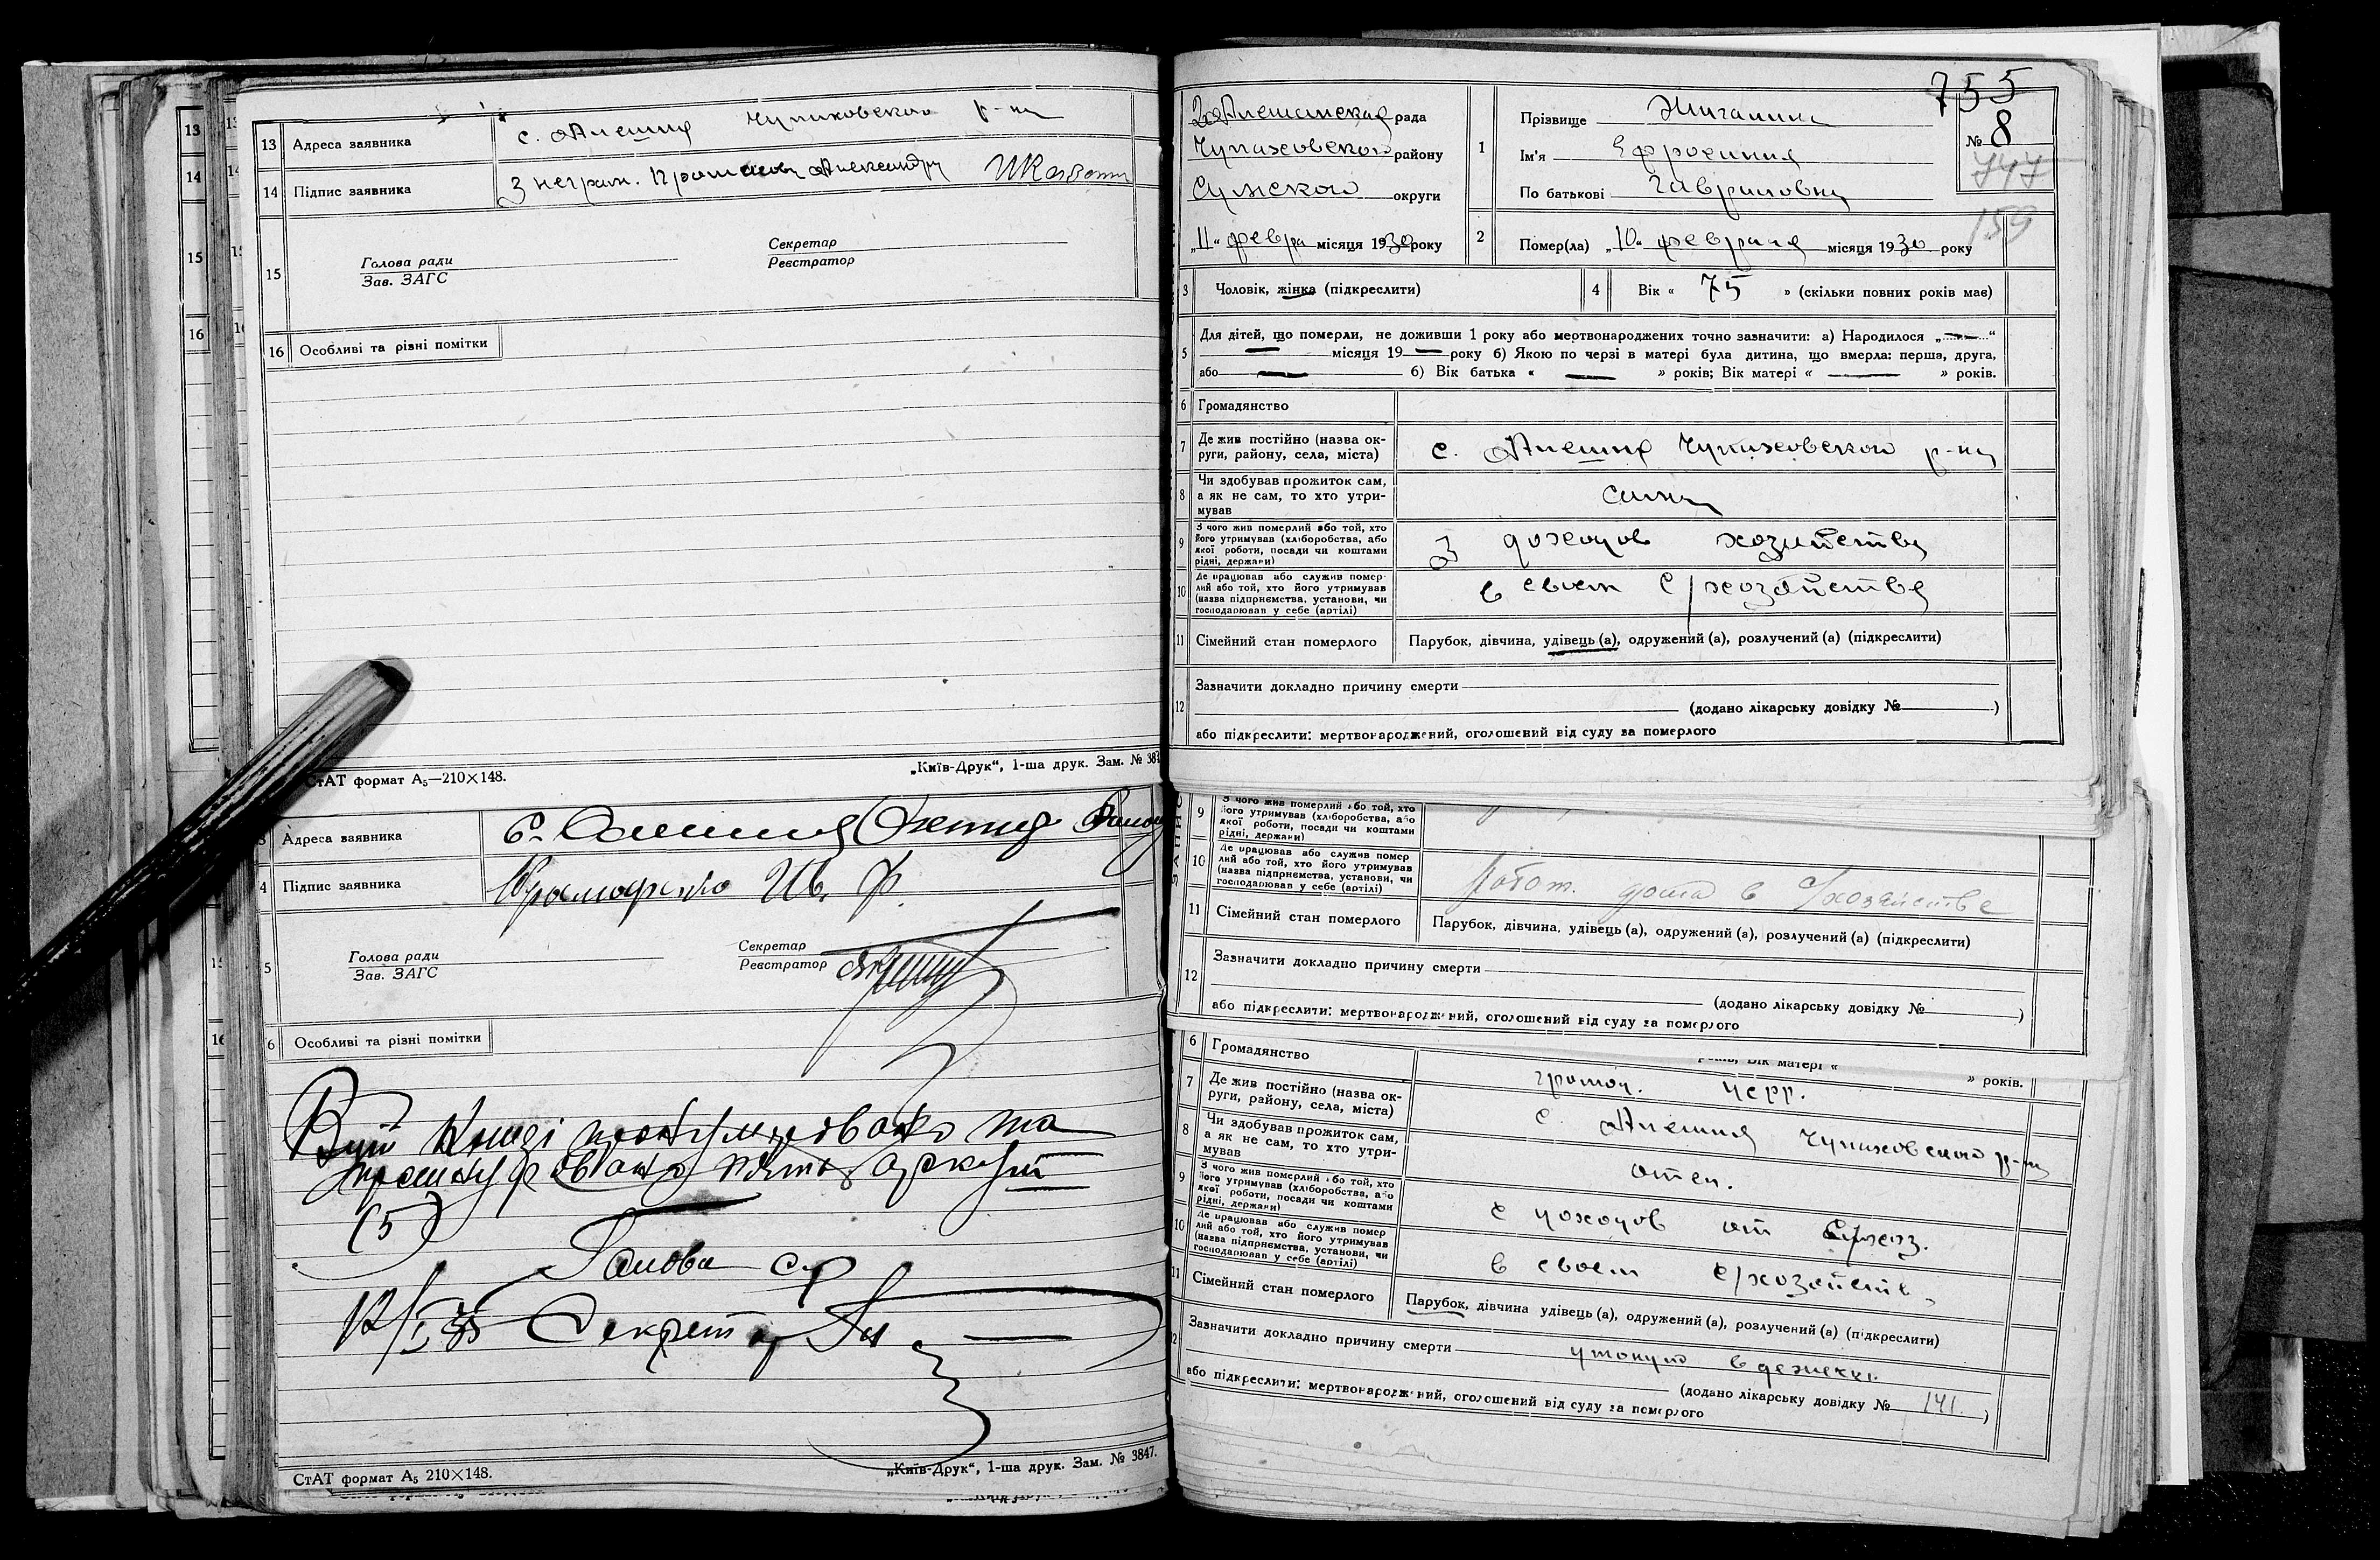 13 Адреса заявника с. Алешня Чупиховского р-на
14 Підпис заявника З неграм.
15 Голова ради
Зав. ЗАГС
Секретар
Реєстратор
16 Особливі та різні помітки
СтАТ формат А₅—210×148.
„Київ-Друк“, 1-ша друк. Зам. № 384
Адреса заявника с.
4 Підпис заявника Ив. Ф.
5 Голова ради
Зав. ЗАГС
Секретар
Реєстратор
6 Особливі та різні помітки
Всій Книзі пронумеровано та
прошнуровано пять аркуш
(5)
Голова с/р
Секретар
СтАТ формат А₅ 210×148.
„Київ-Друк“, 1-ша друк. Зам. № 3847.
755
рада
Чупиховского району
Сумского округи
„11“ февра місяця 1930 року
1 Прізвище
Ім'я Ефросиния
По батькові Гавриловна
№ 8
747
159
2 Помер(ла) „10“ февраля місяця 1930 року
3 Чоловік, жінка (підкреслити)
4 Вік « 75 » (скільки повних років має)
5 Для дітей, що померли, не доживши 1 року або мертвонароджених точно зазначити: а) Народилося „—“
— місяця 19— року б) Якою по черзі в матері була дитина, що вмерла: перша, друга,
або — б) Вік батька « — » років; Вік матері « — » років.
6 Громадянство
7 Де жив постійно (назва ок-
руги, району, села, міста) с. Алешня Чупиховского р-на
8 Чи здобував прожиток сам,
а як не сам, то хто утри-
мував сама
9 З чого жив померлий або той, хто
його утримував (хліборобства, або
якої роботи, посади чи коштами
рідні, держави) З доходов хозяйства
10 Де працював або служив помер-
лий або той, хто його утримував
(назва підприємства, установи, чи
господарював у себе (артілі) в своем С/хозяйстве
11 Сімейний стан померлого Парубок, дівчина, удівець (а), одружений (а), розлучений (а) (підкреслити)
12 Зазначити докладно причину смерти
(додано лікарську довідку № )
або підкреслити: мертвонароджений, оголошений від суду за померлого
9 З чого жив померлий або той, хто
його утримував (хліборобства, або
якої роботи, посади чи коштами
рідні, держави)
10 Де працював або служив помер
лий або той, хто його утримував
(назва підприємства, установи, чи
господарював у себе (артілі) Работ. дома в С/хозяйстве
11 Сімейний стан померлого Парубок, дівчина, удівець (а), одружений (а), розлучений (а) (підкреслити)
12 Зазначити докладно причину смерти
(додано лікарську довідку № )
або підкреслити: мертвонароджений, оголошений від суду за померлого
років; Вік матері « » років.
6 Громадянство
7 Де жив постійно (назва ок-
руги, району, села, міста) с. Алешня Чупиховского р-на
8 Чи здобував прожиток сам,
а як не сам, то хто утри-
мував отец.
9 З чого жив померлий або той, хто
його утримував (хліборобства, або
якої роботи, посади чи коштами
рідні, держави) с доходов от С/хоз.
10 Де працював або служив помер
лий або той, хто його утримував
(назва підприємства, установи, чи
господарював у себе (артілі) в своем С/хозяйств
11 Сімейний стан померлого Парубок, дівчина удівець (а), одружений (а), розлучений (а) (підкреслити)
Зазначити докладно причину смерти утонул в
(додано лікарську довідку № 141. )
або підкреслити: мертвонароджений, оголошений від суду за померлого